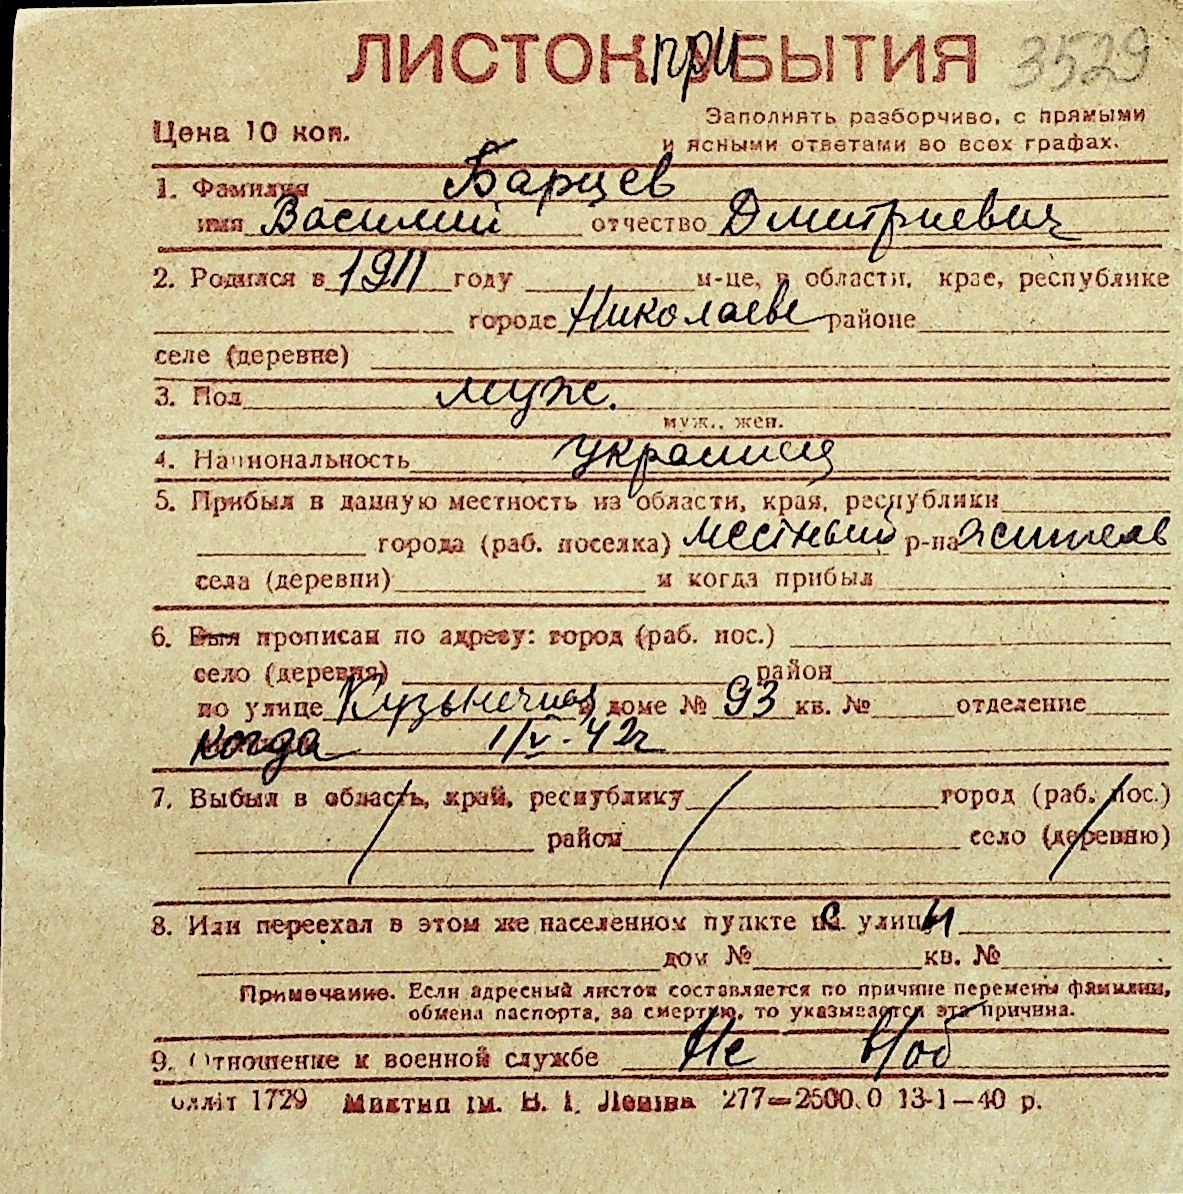 ЛИСТОК ПРИБЫТИЯ 3529
Цена 10 коп.
Заполнять разборчиво, с прямыми
и ясными ответами во всех графах.
1. Фамилия Барцев
имя Василий отчество Дмитриевич
2. Родился в 1911 году м-це, в области, крае, республике
городе Николаеве районе
селе (деревне)
3. Пол муж.
муж., жен.
4. Национальность украинец
5. Прибыл в данную местность из области, края, республики
города (раб. поселка) местный р-на житель
села (деревни) и когда прибыл
6. Был прописан по адресу: город (раб. пос.)
село (деревня) район
по улице Кузнечная в доме № 93 кв. № отделение
когда 1/V-42г
7. Выбыл в область, край, республику город (раб. пос.)
район село (деревню)
8. Или переехал в этом же населенном пункте с улицы
дом № кв. №
Примечание. Если адресный листок составляется по причине перемены фамилии,
обмена паспорта, за смертью, то указывается эта причина.
9. Отношение к военной службе Не в/об
1729 ім. В. І. Леніна 277—2500.0 13-1—40 р.